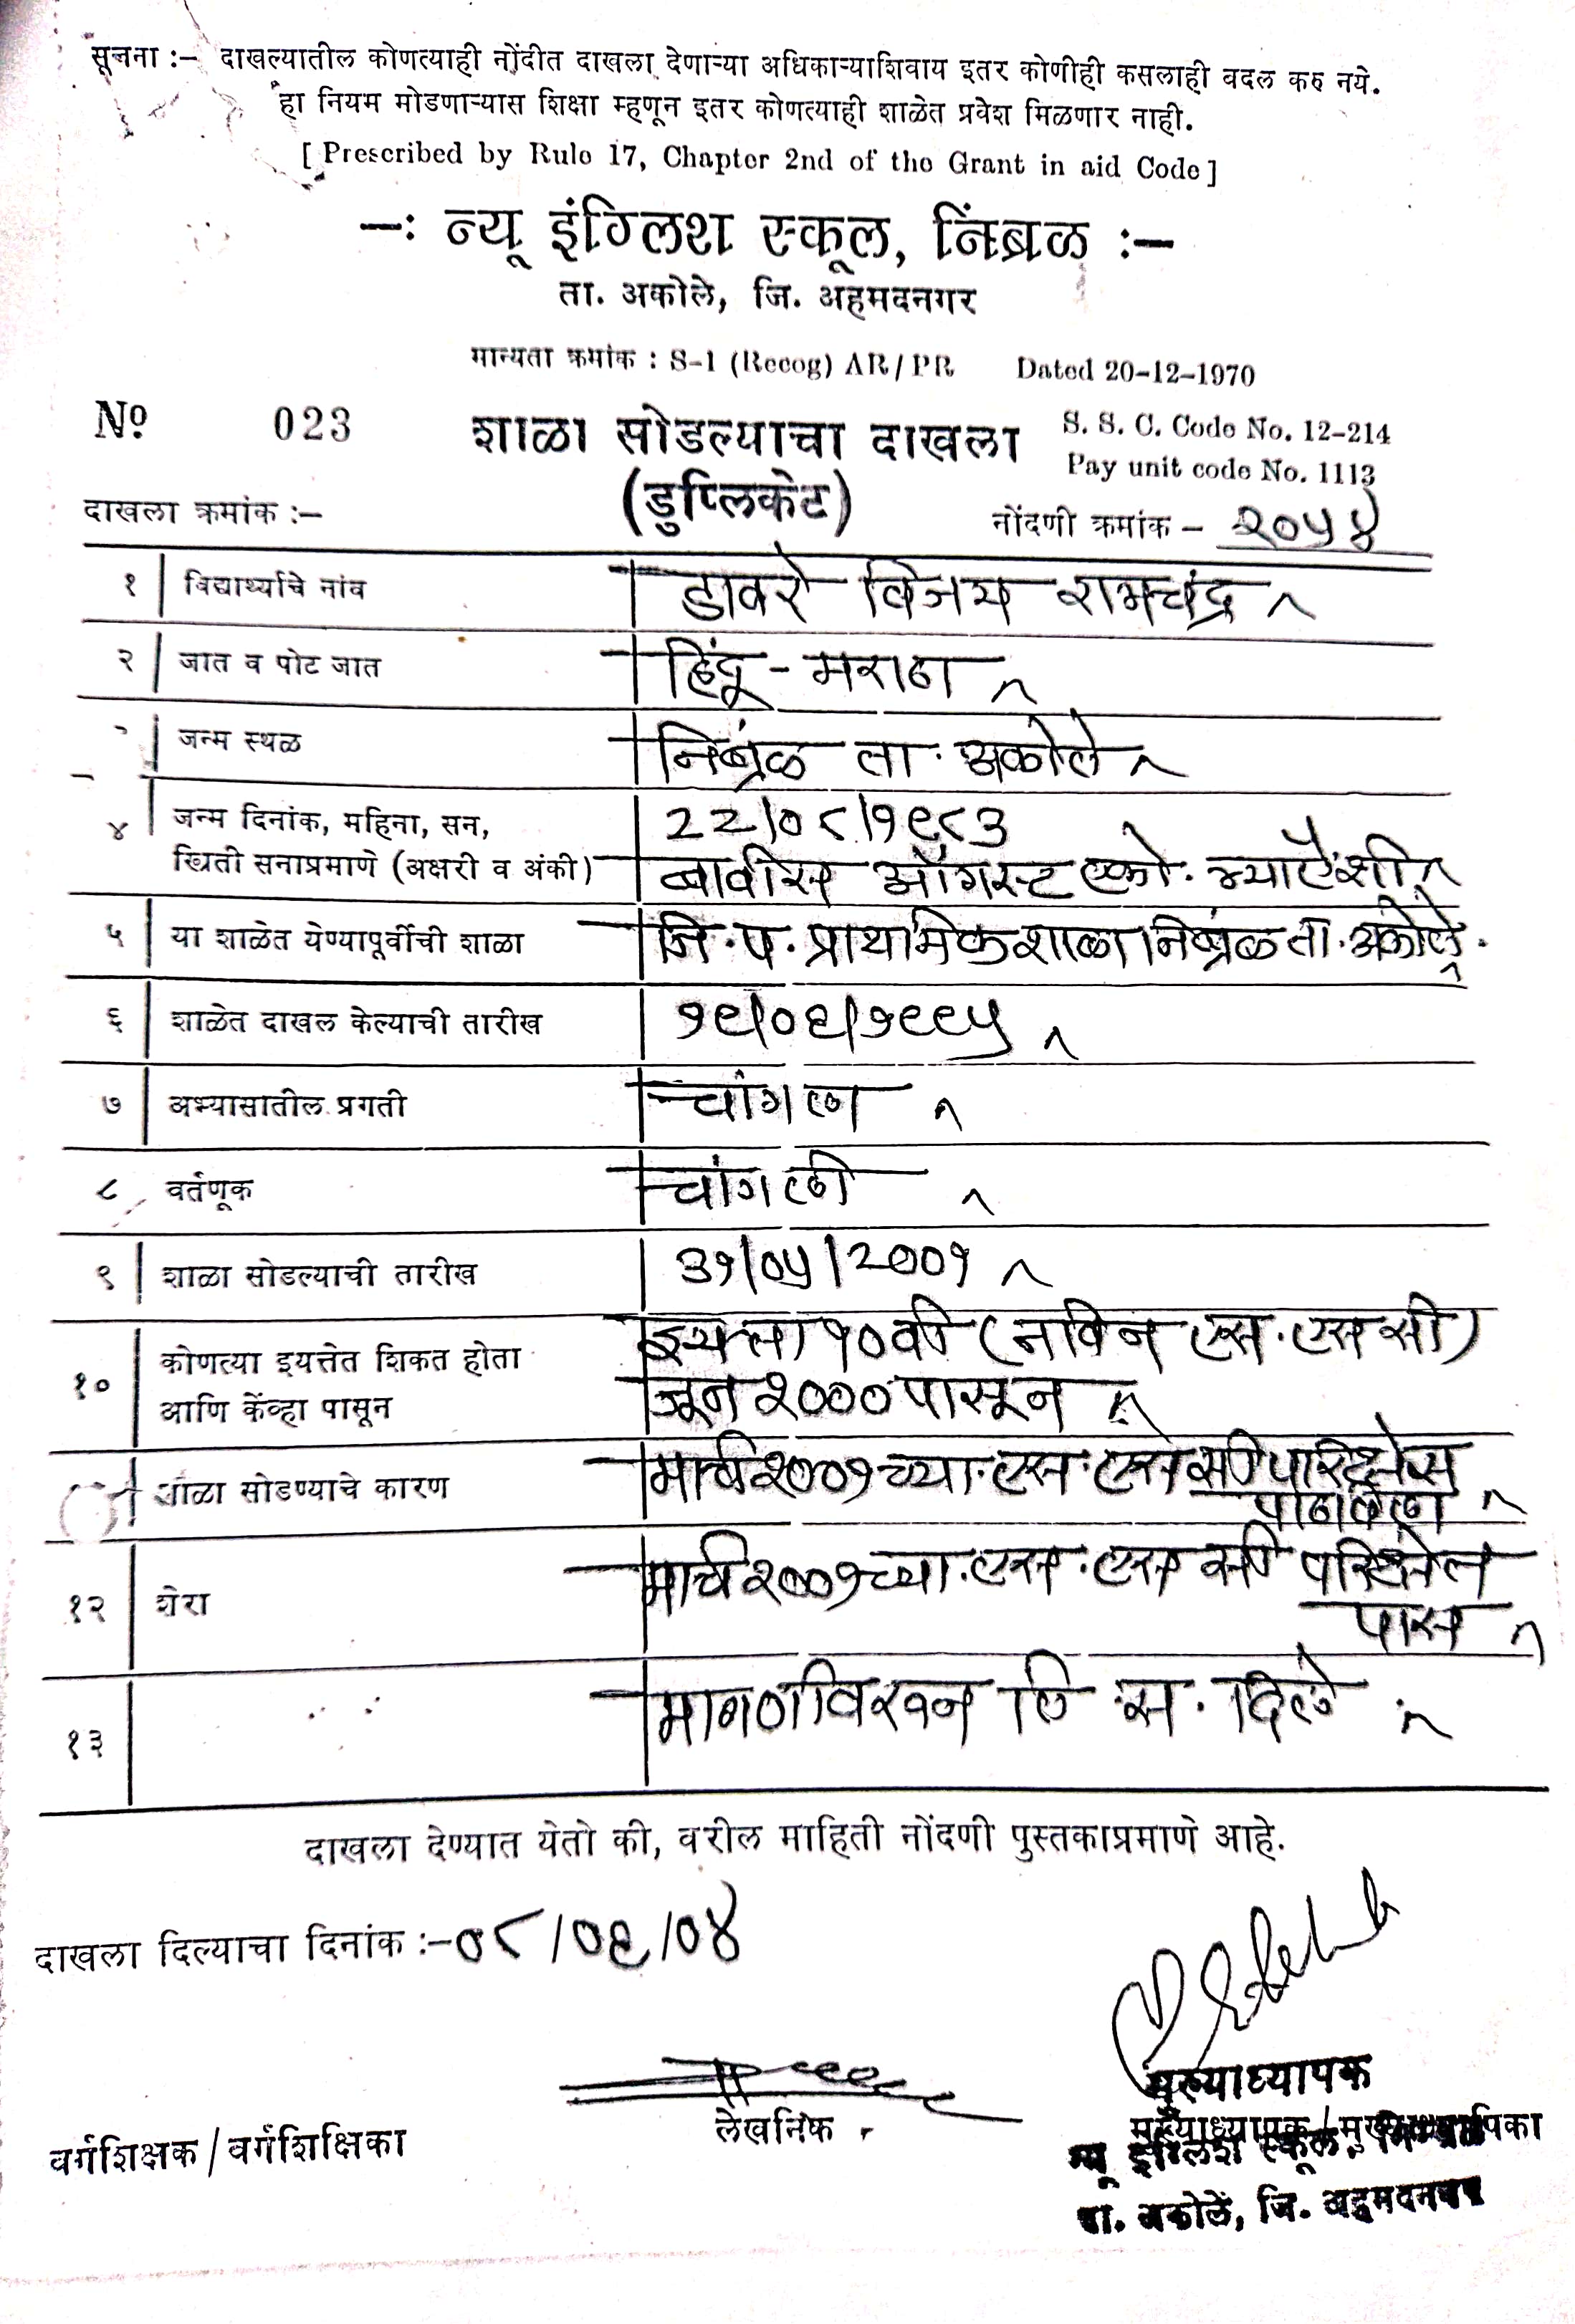 सूचना :– दाखल्यातील कोणत्याही नोंदीत दाखला देणाऱ्या अधिकाऱ्याशिवाय इतर कोणीही कसलाही बदल करु नये.
हा नियम मोडणाऱ्यास शिक्षा म्हणून इतर कोणत्याही शाळेत प्रवेश मिळणार नाही.
[ Prescribed by Rule 17, Chapter 2nd of the Grant in aid Code ]
–: न्यू इंग्लिश स्कूल, निंब्रळ :–
ता. अकोले, जि. अहमदनगर
मान्यता क्रमांक : S-1 (Recog) AR/PR Dated 20-12-1970
No 023 शाळा सोडल्याचा दाखला S. S. C. Code No. 12-214
Pay unit code No. 1113
दाखला क्रमांक :– (डुप्लिकेट) नोंदणी क्रमांक – २०५४
१ विद्यार्थ्याचे नांव डावरे विजय रामचंद्र
२ जात व पोट जात हिंदू - मराठा
जन्म स्थळ निब्रंळ ता. अकोले
४ जन्म दिनांक, महिना, सन, 22/०८/१९८३
ख्रिती सनाप्रमाणे (अक्षरी व अंकी) बावीस ऑगस्ट एको. ञ्याऐंशी
५ या शाळेत येण्यापूर्वीची शाळा जि. प. प्राथमिक शाळा निब्रंळ ता. अकोले.
६ शाळेत दाखल केल्याची तारीख १९/०६/१९९५
७ अभ्यासातील प्रगती चांगला
८ वर्तणूक चांगली
९ शाळा सोडल्याची तारीख ३१/०५/2००१
१० कोणत्या इयत्तेत शिकत होता इयत्ता १० वी (नविन एस. एस सी)
आणि केंव्हा पासून जून २००० पासून
शाळा सोडण्याचे कारण मार्च २००१ च्या. एस. एस सी परिक्षेस
पाठविला
१२ शेरा मार्च २००१ च्या. एस. एस सी परिक्षेत
पास
१३ मागणीवरुन लि. स. दिले
दाखला देण्यात येतो की, वरील माहिती नोंदणी पुस्तकाप्रमाणे आहे.
दाखला दिल्याचा दिनांक :– ०८/०६/०४
मुख्याध्यापक
लेखनिक
वर्गशिक्षक / वर्गशिक्षिका मुख्याध्यापक / मुख्याध्यापिका
न्यू इंग्लिश स्कूल, निंब्रळ
ता. अकोले, जि. अहमदनगर